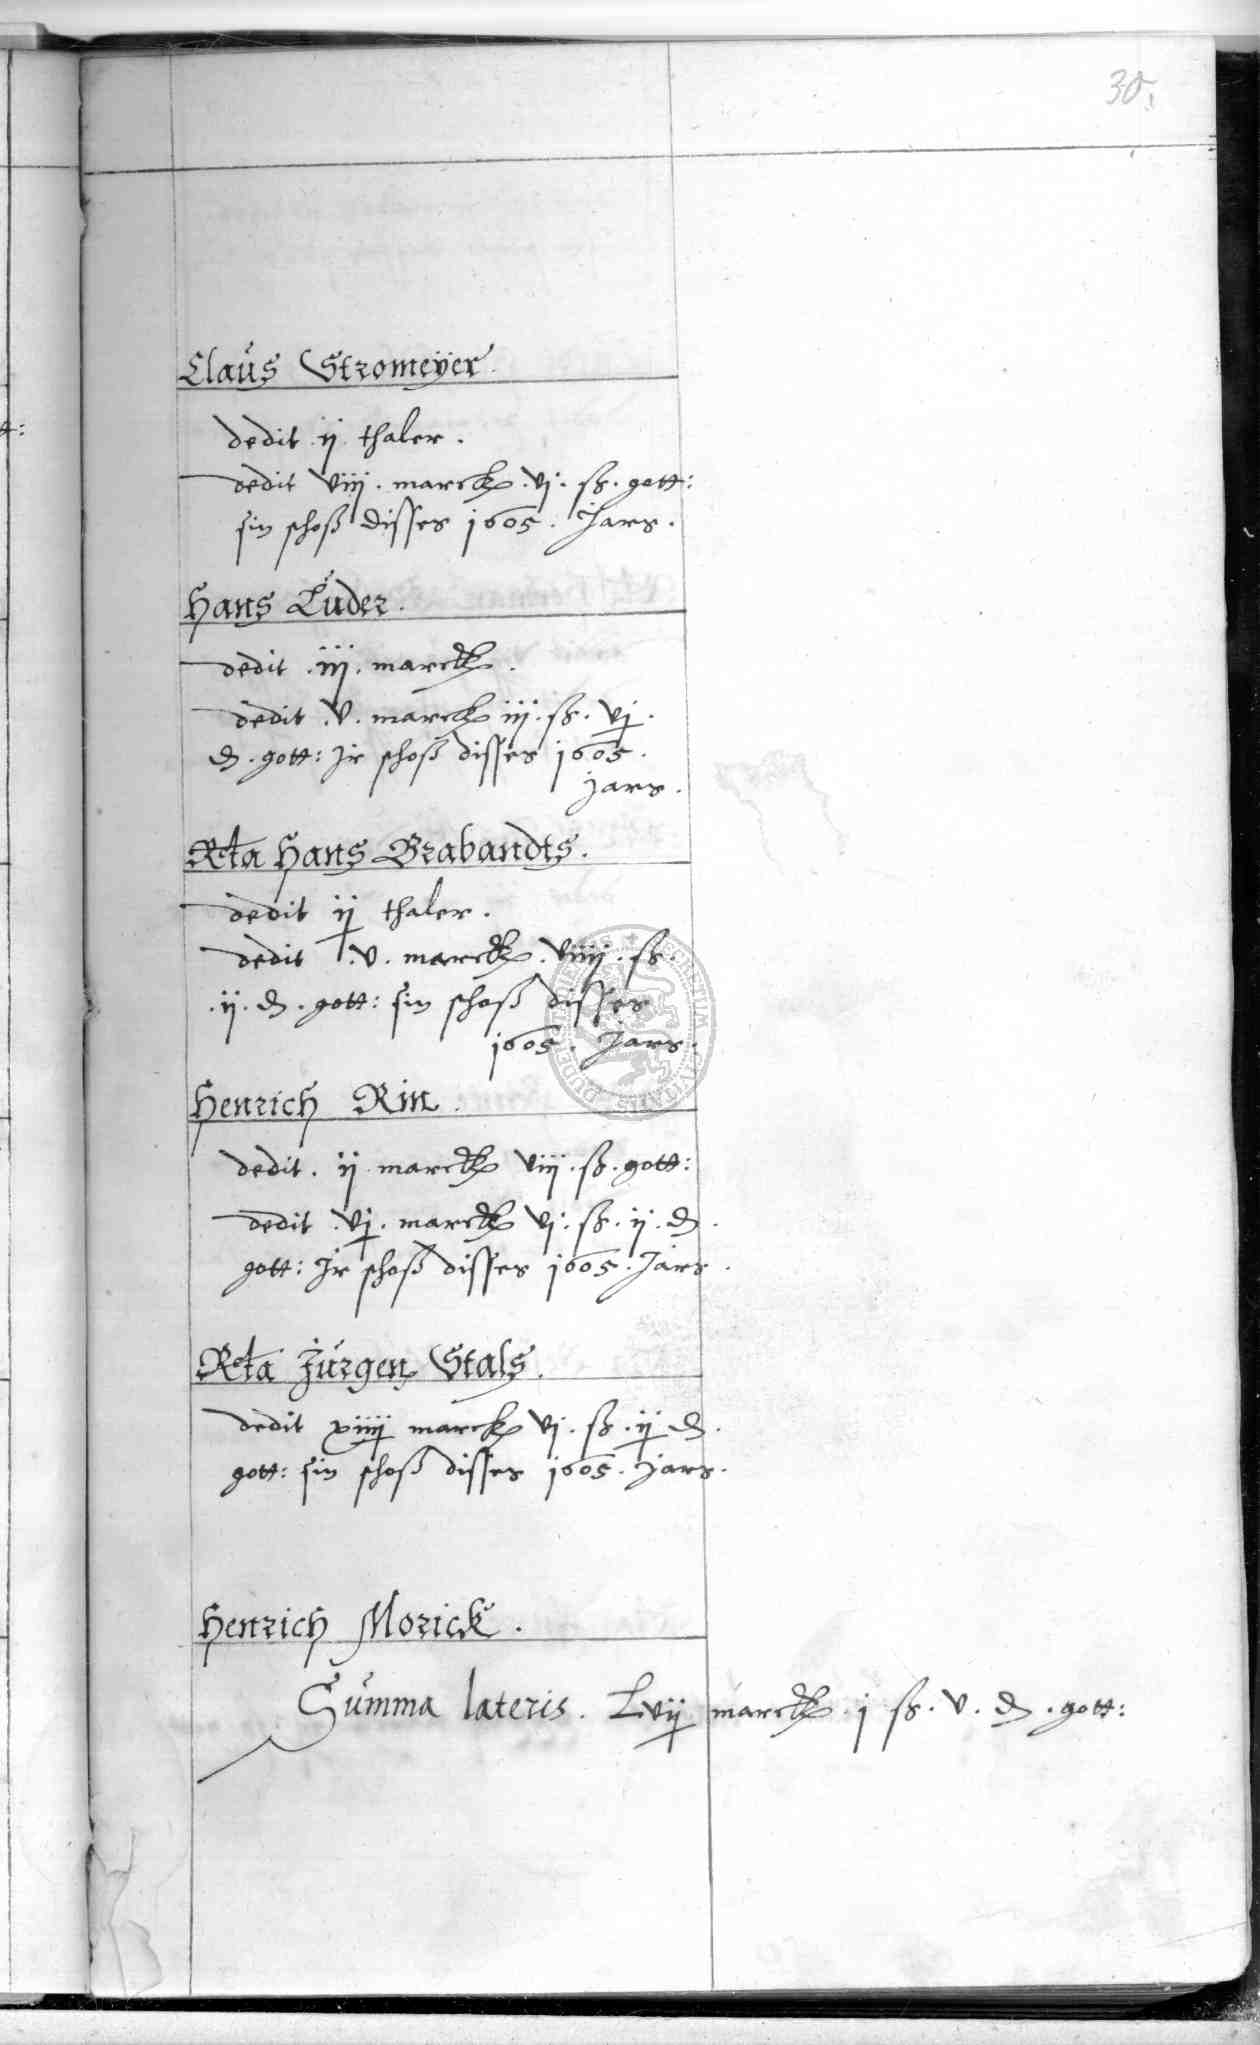 30.
Claus Stromeÿer.
dedit ij thaler.
dedit viij. marck. vj. sß. gott:
sin schoß disses 1605. Jars.
Hans Lüder.
dedit .iij. marck.
dedit .v. marck iij. sß. vj.
d. gott: Jr schoß disses 1605.
jars.
Rcta Hans Brabandts.
dedit ij thaler.
dedit .v. marck. viiij. sß.
.ij. d. gott: sin schoß disses
1605. Jars.
Henrich Rin.
dedit. ij marck viij. sß. gott:
dedit .vj. marck vj. sß. ij. d.
gott: Jr schoß disses 1605. Jars.
Rcta Jürgen Stals.
dedit xiiij marck vj. sß. ij d.
gott: sin schoß disses 1605. jars.
Henrich Morick.
Summa lateris. Lvij marck. j sß. v. d. gott: